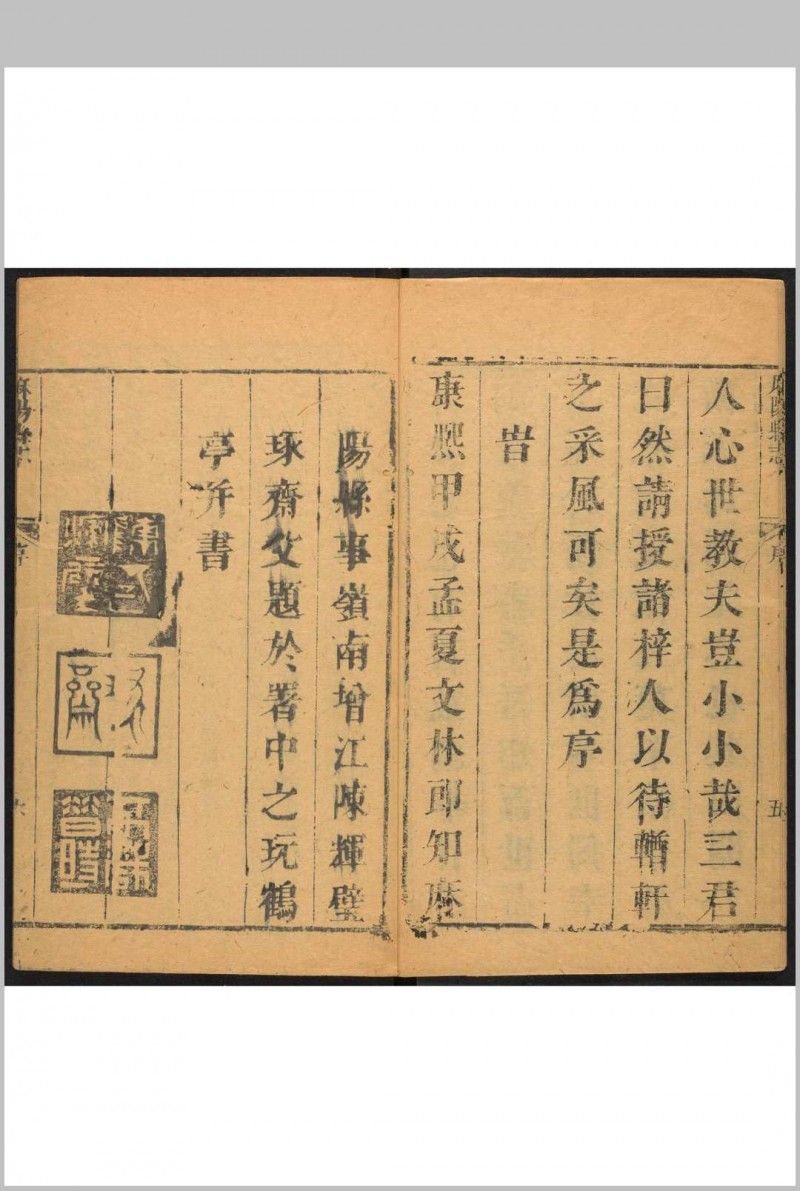 人心世教夫豈小小哉三君
曰然請授諸梓人以待輶軒
之采風可矣是爲序
旹
康熙甲戌孟夏文林郎知麻
陽縣事嶺南增江陳輝璧
琢齋父題於署中之玩鶴
亭并書
麻陽縣志
序
五
琢齋